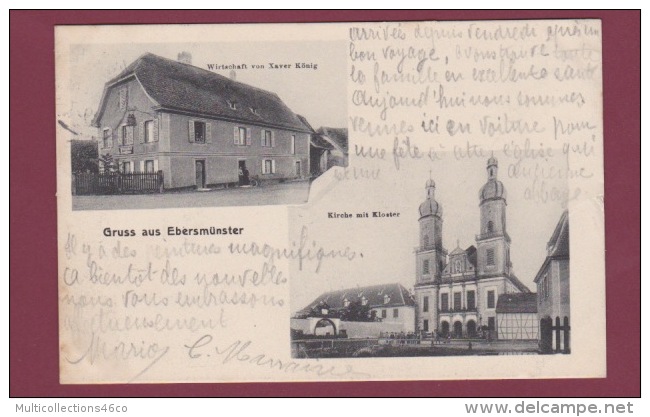 Wirtschaft von Xaver König
arrivés depuis vendredi après un
bon voyage, avons trouvé toute
la famille en excellente santé
Aujourd'hui nous sommes
venues ici en voiture pour
une fête à cette église qui
ancienne
abbaye
Gruss aus Ebersmünster
Kirche mit Kloster
Il y a des peintures magnifiques.
à bientôt des nouvelles
nous vous embrassons
affectueusement
Multicollections46co
www.delcampe.net